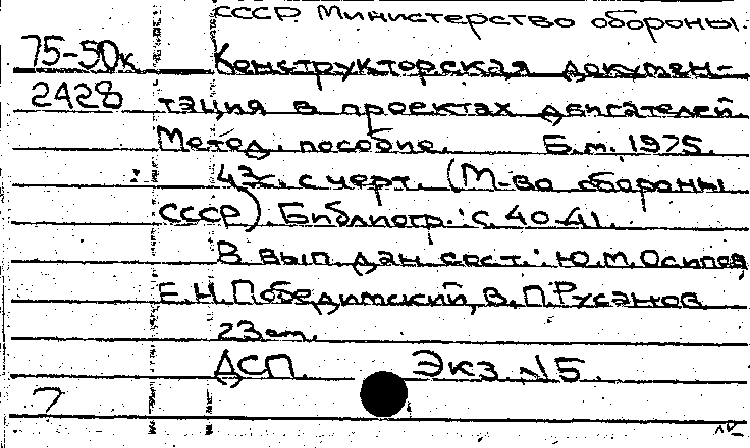 СССР Министерство обороны.
75-50к Конструкторская докумен-
2428 тация в проектах двигателей.
Метод. пособие. Б.м. 1975.
43с. с черт. (М-во обороны
СССР). Библиогр.: с. 40-41.
В вып. дан. сост.: Ю.М.Осипов
Е.Н.Победимский, В.П.Русанов
23см.
ДСП. Экз. N5.
7